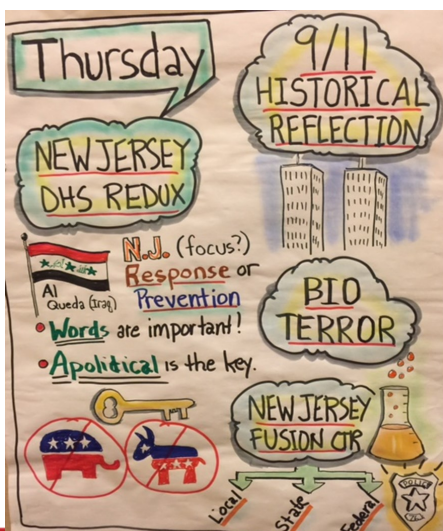 Thursday
9/11
HISTORICAL
REFLECTION
NEW JERSEY
DHS REDUX
N.J. (focus?)
Response or
Prevention
Al
Queda (Iraq)
• Words are important!
• Apolitical is the key.
BIO
TERROR
NEW JERSEY
FUSION CTR
Local
State
Federal